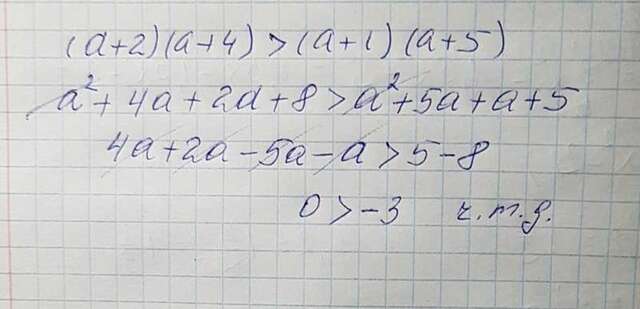 (a+2)(a+4)>(a+1)(a+5)
a²+4a+2a+8>a²+5a+a+5
4a+2a-5a-a>5-8
0>-3 ч.т.д.